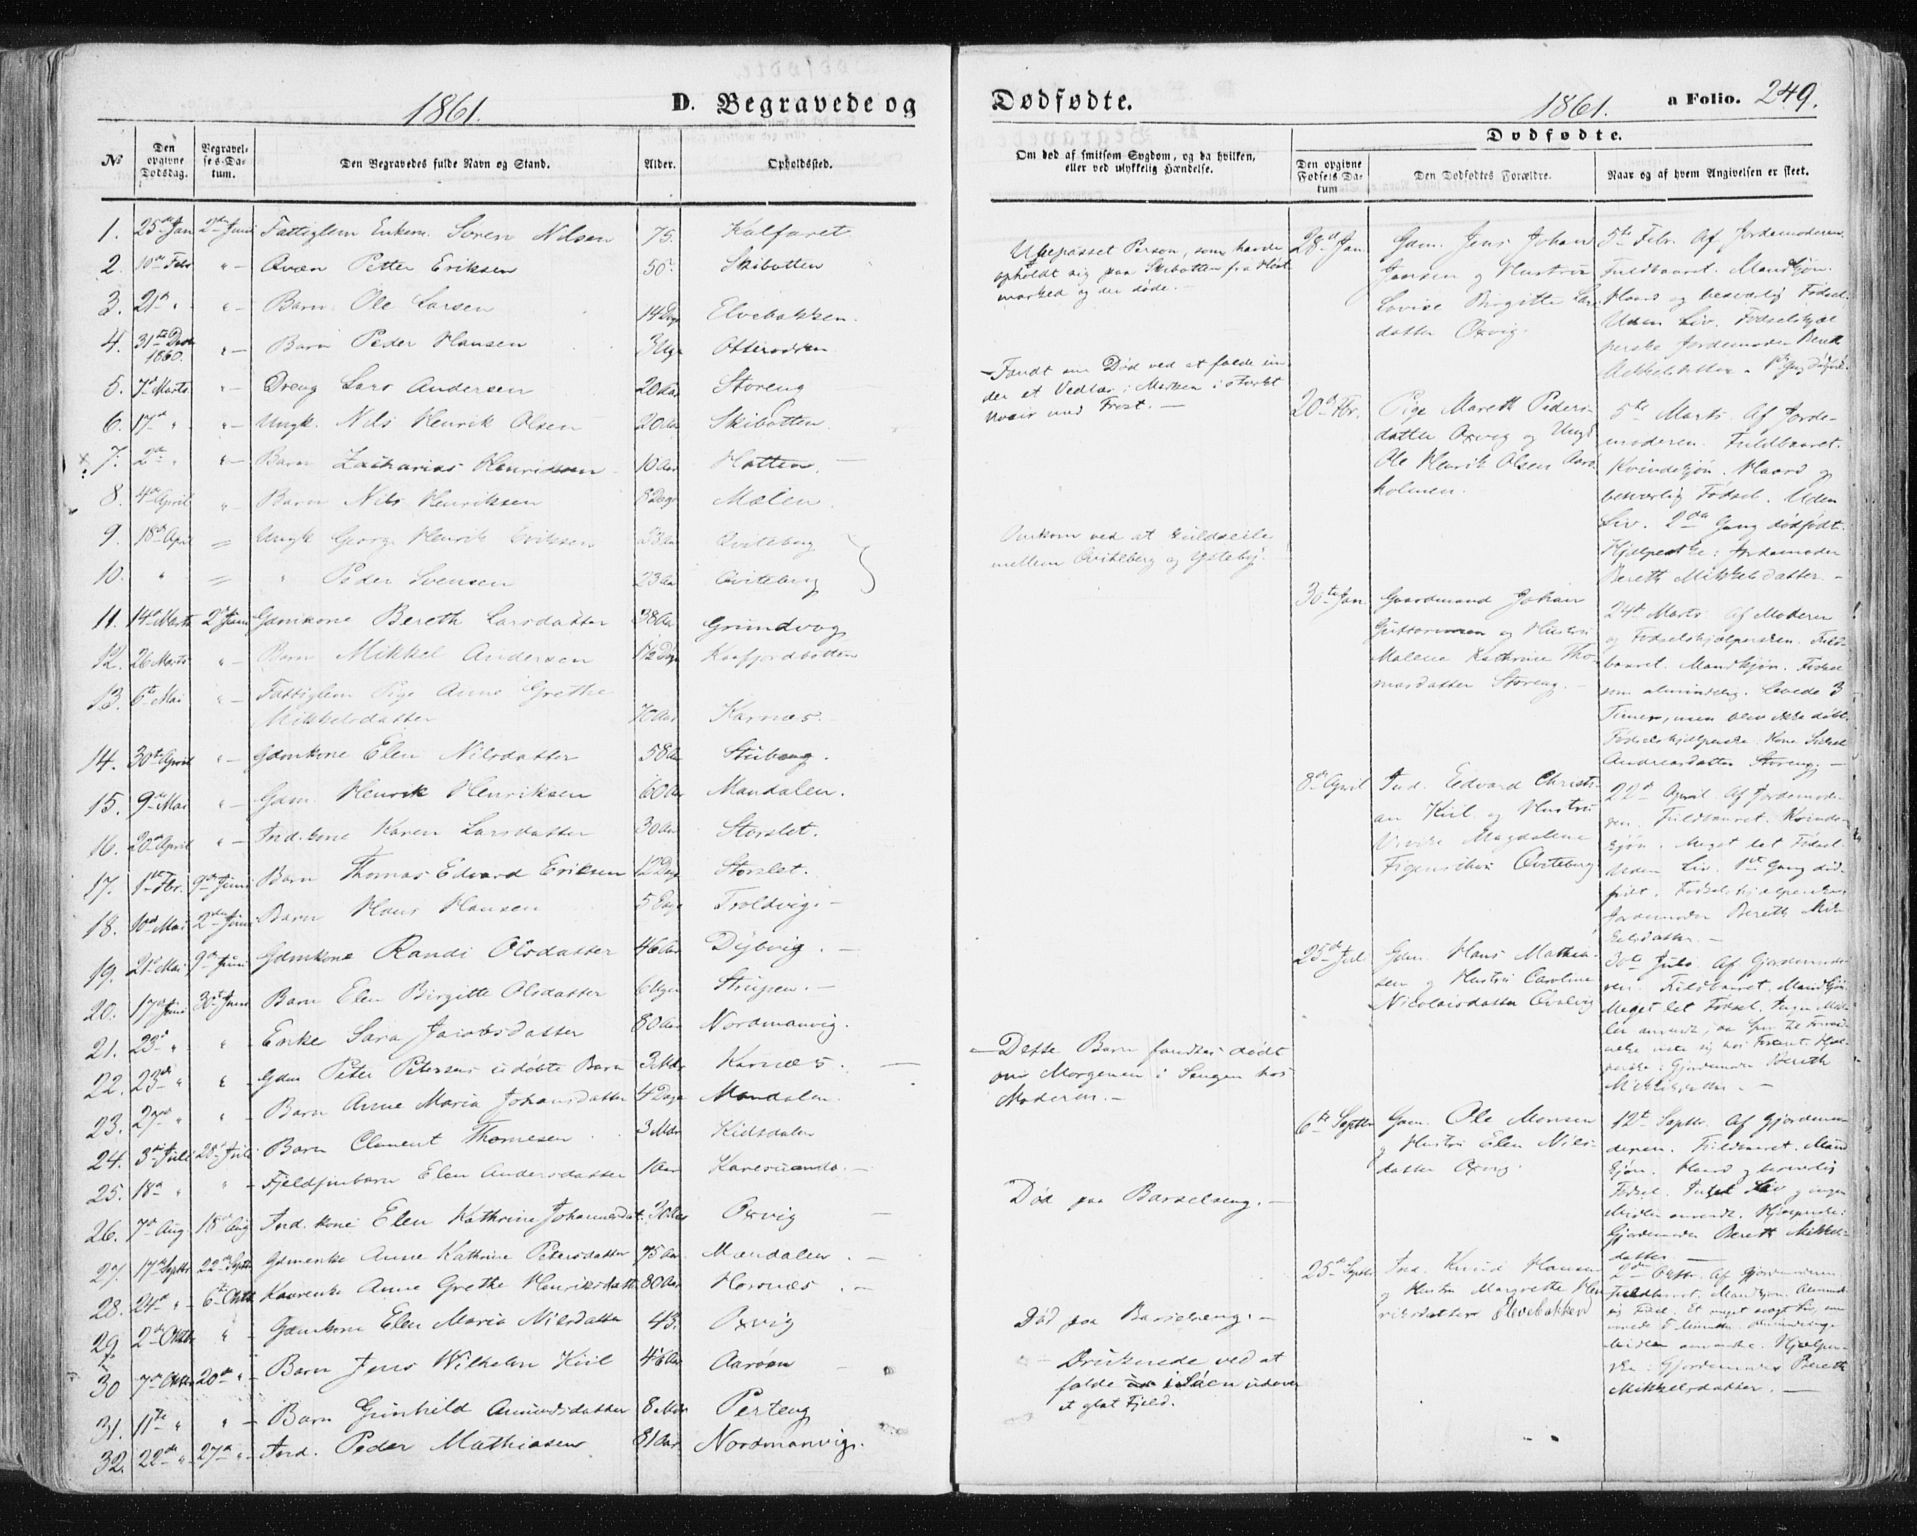 1861. D. Begravede og
№ Den opgivne Dødsdag. Begravelses-Datum. Den Begravedes fulde Navn og Stand. Alder. Opholdssted.
1. 25de Jan 2den Juni Fattiglem Enkem. Søren Nilsen 75. Kalfaret
2. 10de Febr " – Qvæn Petter Eriksen 50. Skibotten
3. 21de " " – Barn Ole Larsen 14 Dage Elvebakken.
4. 31te Decbr 1860. " – Barn Peder Hansen 3 Uge
5. 7de Marts " – Dreng Lars Andersen 20 Aar Storeng
6. 17de " " – Ungk. Nils Henrik Olsen 20 Aar Skibotten
7. 2den " " – Barn Zacharias Henriksen 10 Aar Hatten. –
8. 4de April " – Barn Nils Henriksen 8 Dage Mælen
9. 18de April = Ungk Georg Henrik Erikson 23 Aar Qviteberg
10. " = " Peder Svensen 23 Aar Qviteberg
11. 14de Marts 2de Juni Gdmkone Bereth Larsdatter 38 Aar Grundvog
12. 26 Marts " – Barn Mikkel Andersen 1½ Dag Kaafjordbotten
13. 6te Mai " – Fattiglem Pige Anne Grethe
Mikkelsdatter 70 Aar Karnæs. –
14. 30te April " – Gdmkone Elen Nilsdatter 58 Aar Stubeng.
15. 9de Mai " – Gdm. Henrik Henriksen 60 Aar Mandalen.
16. 20de April " – Ind.kone Karen Larsdatter 30 Aar Storslet.
17. 1ste Fbr. 9de Juni Barn Thomas Edvard Eriksen 12 Dage Storslet.
18. 10de Mai 2den Juni Barn Hans Hansen 5 Dage Troldvig. –
19. 21de Mai 9de Juni Gdmkone Randi Olsdatter 46 Aar Dybvig. –
20. 17de Juni 30te Juni Barn Elen Birgitte Olsdatter 6 Uger Strupen. –
21. 23de " " – Enke Sara Jacobsdatter 80 Aar Nordmanvig.
22. 23de " " – Gdm Peter Petersens udøbte Barn 3 Mdr Karnæs. –
23. 27de " " – Barn Anne Maria Johansdatter 4 Dage Mandalen.
24. 3de Juli 28de Juli Barn Clement Thomesen 3 Mdr Kidsdalen
25. 18de " " – Fjeldfinbarn Elen Andersdatter 1 Aar Karesuando. –
26. 7de Aug 18de Aug Ind. kone Elen Kathrine Johannesdat. 30 Aar Oxvig –
27. 17de Septbr 22de Septbr Gdmenke Anne Kathrine Petersdatter 75 Aar Mandalen. –
28. 24de " – 6te Oktbr Anne Grethe Henriksdatt 80 Aar Hornæs. –
29. 2de Oktbr " – Gdmkone Elen Maria Nilsdatter 43. Oxvig
30 7de Oktbr 20de " – Barn Jens Wilhelm Kiil Aarøen –
31. 11te " " – Barn Gunhild Amundsdatter 8 Mdr Perteng
32. 22de " 27de " – Ind. Peder Mathiasen 81 Aar Nordmanvig.
Dødfødte. 1861. a Folio. 249.
Om død af smitsom Sygdom, og da hvilken, eller ved ulykkelig Hændelse.
Dødfødte.
Den opgivne Fødsels Datum Den Dødfødtes Forældre. Naar og af hvem Angivelsen er skeet.
Ubepasset Person, som havde
opholdt sig paa Skibotten fra Høst
marked og der døde. –
– Fandt sin Død ved at falde un-
der et Vedlas i Marken i stærkt
Uveir med Frost. –
Omkom ved at
mellem Qviteberg og
– Dette Barn fandtes dødt
om Morgenen i Sengen hos
Moderen. –
Død paa Barselseng. –
Død paa Barselseng. –
– Druknede ved at
falde i Søen udover
et glat Fjeld.
28de Jan Gdm. Jens Johan
Jansen og Hustru
Lovise Birgitte Lar
datter Oxvig.
5te Febr. Af Jordemoderen.
Fuldbaaret. Mandkjøn.
Haard og besværlig Fødsel.
Uden Liv. Fødselshjæl
perske Jordemoder Bereth
20de Fbr. Pige Mareth Peders
datter Oxvig og Ungk
Ole Henrik Olsen Aars
holmen.
5te Marts. Af Jorde-
moderen. Fuldbaaret.
Kvindekjøn. Haard og
besværlig Fødsel. Uden
Liv. 2den Gang dødfødt.
Hjelperske: Jordemoder
Bereth Mikkelsdatter. –
30te Jan. Gaardmand Johan
Guttormsen og Hustru
Malene Kathrine Tho
masdatter Storeng. –
24de Marts. Af Moderen
og Fødselshjælpersken. Fuld
baaret. Mandkjøn. Fødsel
som almindelig. Levede 3
Timer, men blev ikke døbt.
Fødselshjelperske: Kone
Andreasdatter Storeng. –
8de April Ind. Edvard Christi-
an Kiil og Hustru
Magdalene
Qviteberg
22de April. Af Jordemode-
ren. Fuldbaaret. Kvinde
kjøn. Meget let Fødsel.
Uden Liv. 1ste Gang død-
født. Fødselshjælperske
Jordemoder Bereth Mik-
kelsdatter. –
25de Juli Gdm. Hans Mathia
sen og Hustru Caroline
Nicolaisdatter Qvalvig
30te Juli. Af Gjordemode-
ren. Fuldbaaret. Mandkjøn.
Meget let Fødsel. Ingen Mid-
ler anvendt,
Gjordemoder Bereth
Mikkelsdatter. –
6te Septbr Gdm. Ole Monsen
og Hustru Elen Nils-
datter Oxvig.
12te Septbr. Af Gjordemo
deren. Fuldbaaret. Mand
kjøn. Haard og besværlig
Fødsel. Intet Liv og ingen
Midler anvendt. Hjælperske:
Gjordemoder Bereth Mikkels-
datter. –
25de Septbr Ind. Knud Hansen
og Hustru Margrethe Hen
riksdatter Elvebakken
2den Oktbr. Af Gjordemoderen
Fuldbaaret. Mandkjøn. Almind
elig Fødsel. Et meget svagt Liv,
Hjælper-
ske: Gjordemoder Bereth
Mikkelsdatter. –